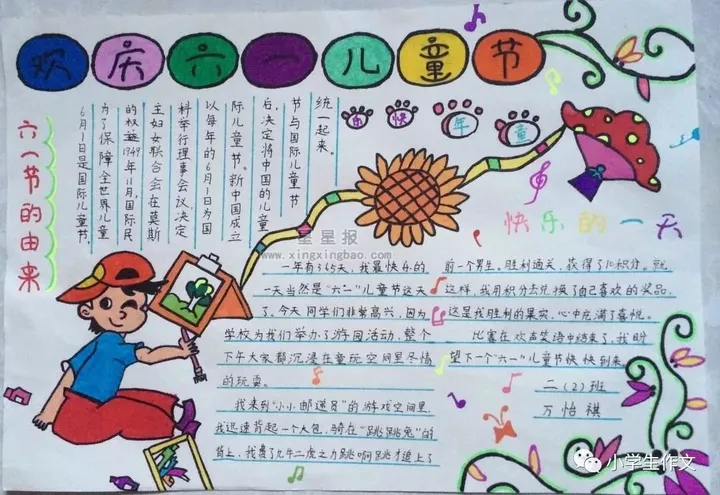 欢庆六一儿童节
六一节的由来
6月1日是国际儿童节。
为了保障全世界儿童
的权益1949年11月,国际民
主妇女联合会在莫斯
科举行理事会议决定
以每年的6月1日为国
际儿童节。新中国成立
后,决定将中国的儿童
节与国际儿童节
统一起来。
乐快年童
快乐的一天
一年有365天,我最快乐的
一天当然是“六一”儿童节这天
了。今天同学们非常高兴,因为
学校为我们举办了游园活动,整个
下午大家都沉浸在童玩空间里尽情
的玩耍。
我来到“小小邮递员”的游戏空间里,
我迅速背起一个大包,骑在“跳跳兔”的
背上,我费了九牛二虎之力跳啊跳才追上了
前一个男生。胜利通关,获得了10积分。就
这样,我用积分去兑换了自己喜欢的奖品,
这是我胜利的果实,心中充满了喜悦。
比赛在欢声笑语中结束了,我盼
望下一个“六一”儿童节快快到来。
二(2)班
万怡祺
星星报
www.xingxingbao.com
小学生作文